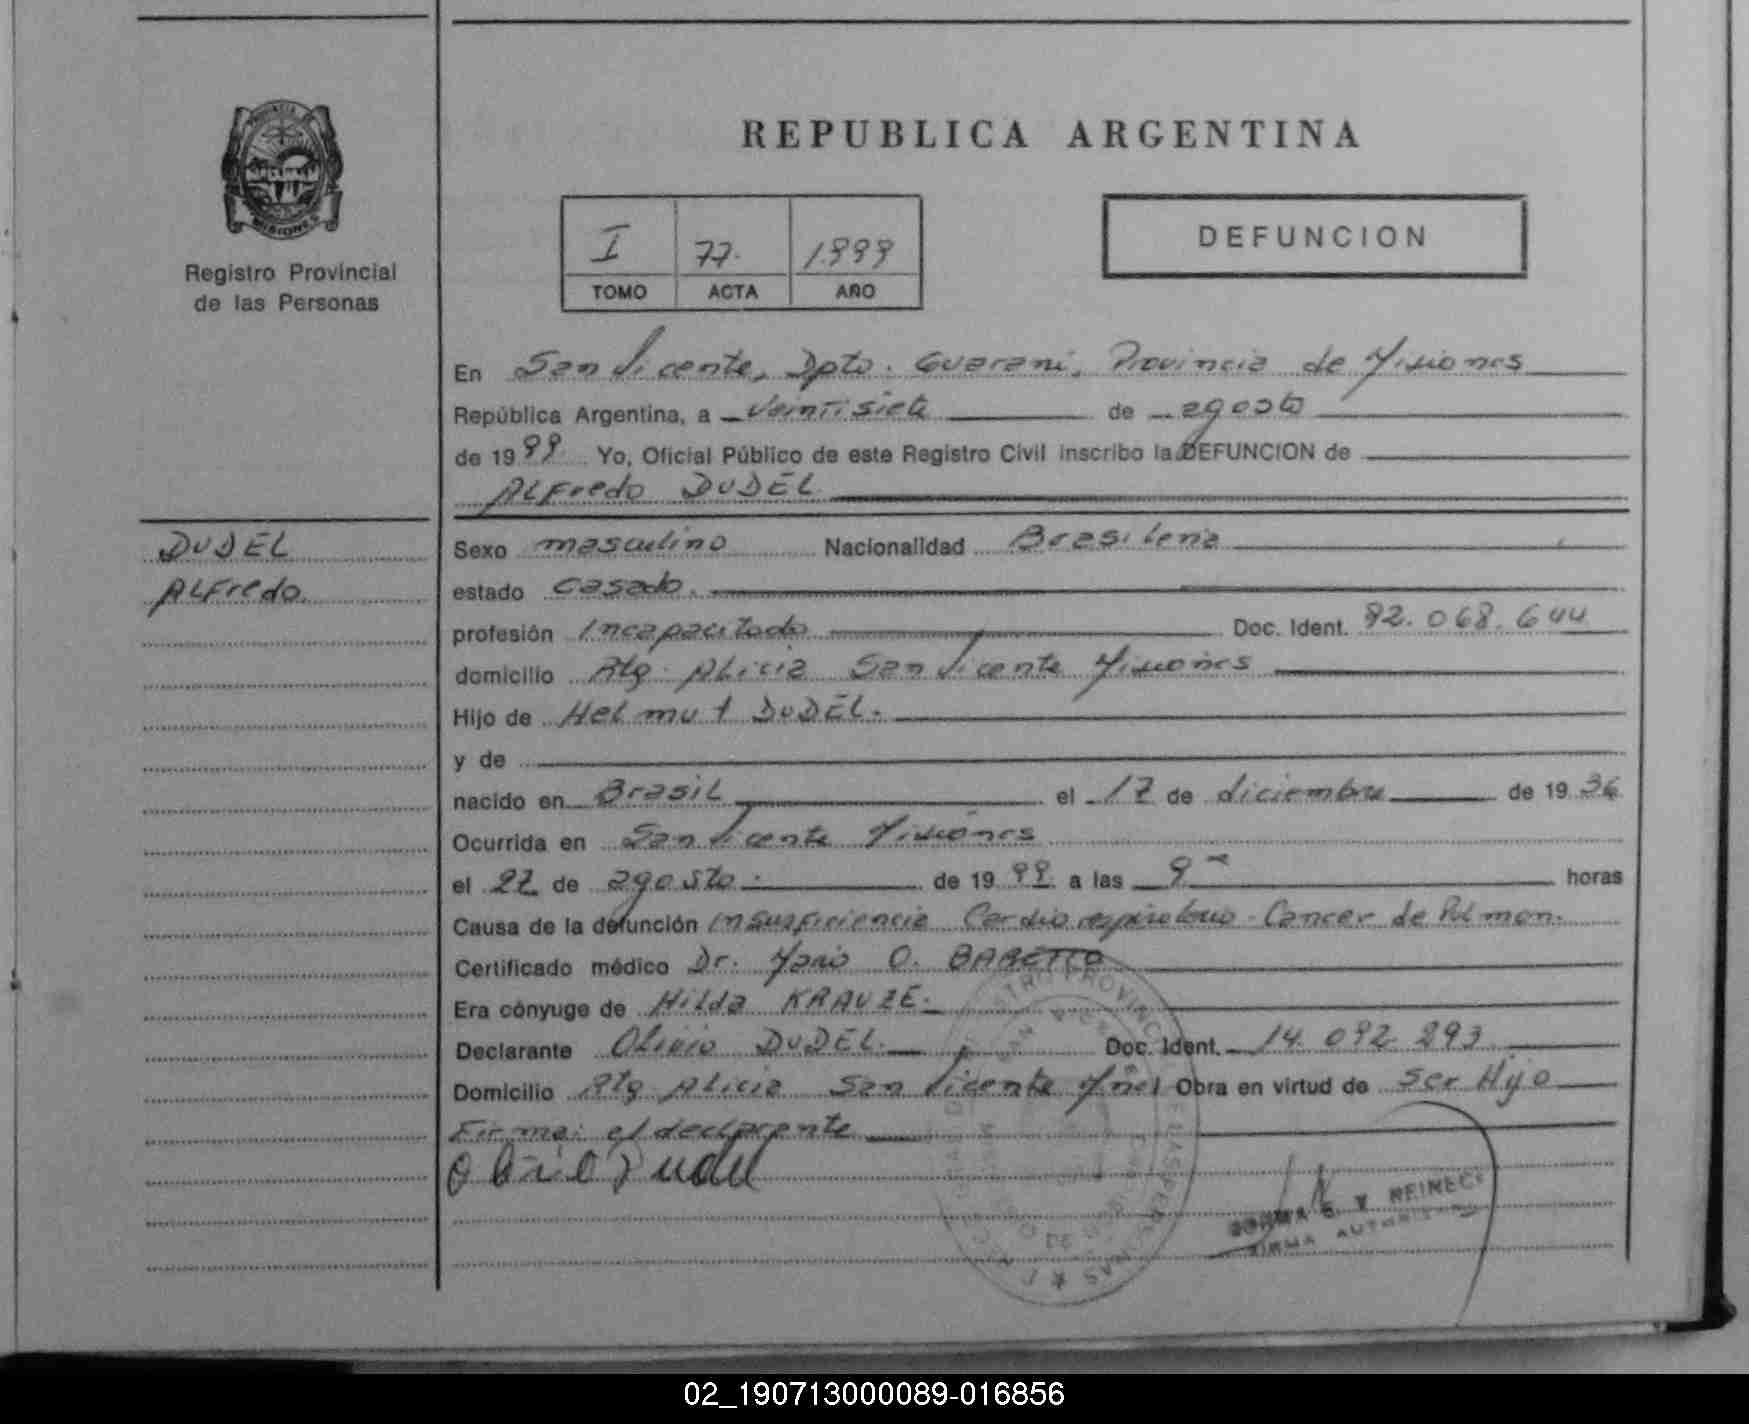 PROVINCIA DE
MISIONES
Registro Provincial
de las Personas
REPUBLICA ARGENTINA
I 77. 1.999
TOMO ACTA AÑO
DEFUNCION
En San Vicente, Dpto. Guarani, Provincia de Misiones
República Argentina, a veintisiete de agosto
de 1999. Yo, Oficial Público de este Registro Civil inscribo la DEFUNCION de
ALFredo DUDEL
DUDEL
ALFredo.
Sexo masculino Nacionalidad Brasileña
estado casado.
profesión Incapacitado Doc. Ident. 92.068.644
domicilio Alicia San Vicente Misiones
Hijo de Helmut DUDEL.
y de
nacido en Brasil el 17 de diciembre de 1936
Ocurrida en San Vicente Misiones
el 27 de agosto. de 1999 a las 9 horas
Causa de la defunción insuficiencia Cardio respiratorio - Cancer de Pulmon.
Certificado médico Dr. Mario O. BARETTO
Era cónyuge de Hilda KRAUZE.
Declarante Olivio DUDEL. Doc. Ident. 14.092.293
Domicilio Alicia San Vicente Mnes Obra en virtud de ser Hijo
Firma: el declarante
Olivio Dudel
REGISTRO PROVINCIAL DE LAS PERSONAS
NORMA B. V REINECK
FIRMA AUTORIZADA
02_190713000089-016856